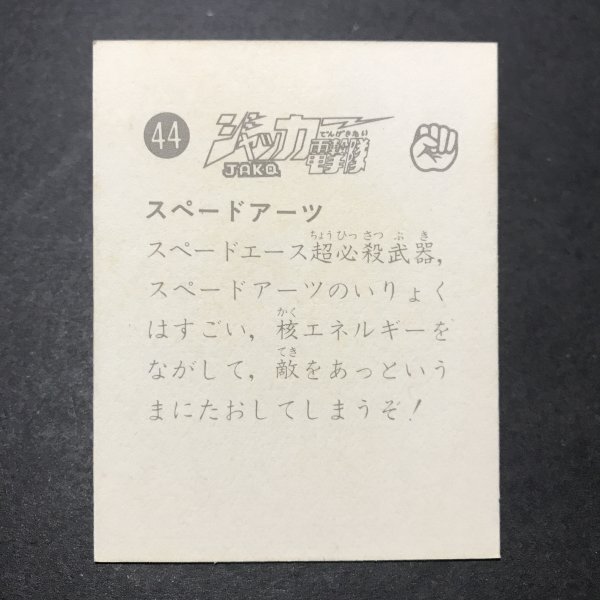 44
ジャッカー
でんげきたい
電撃隊
JAKQ
スペードアーツ
ちょうひっさつぶき
スペードエース超必殺武器,
スペードアーツのいりょく
かく
はすごい, 核エネルギーを
てき
ながして, 敵をあっという
まにたおしてしまうぞ!